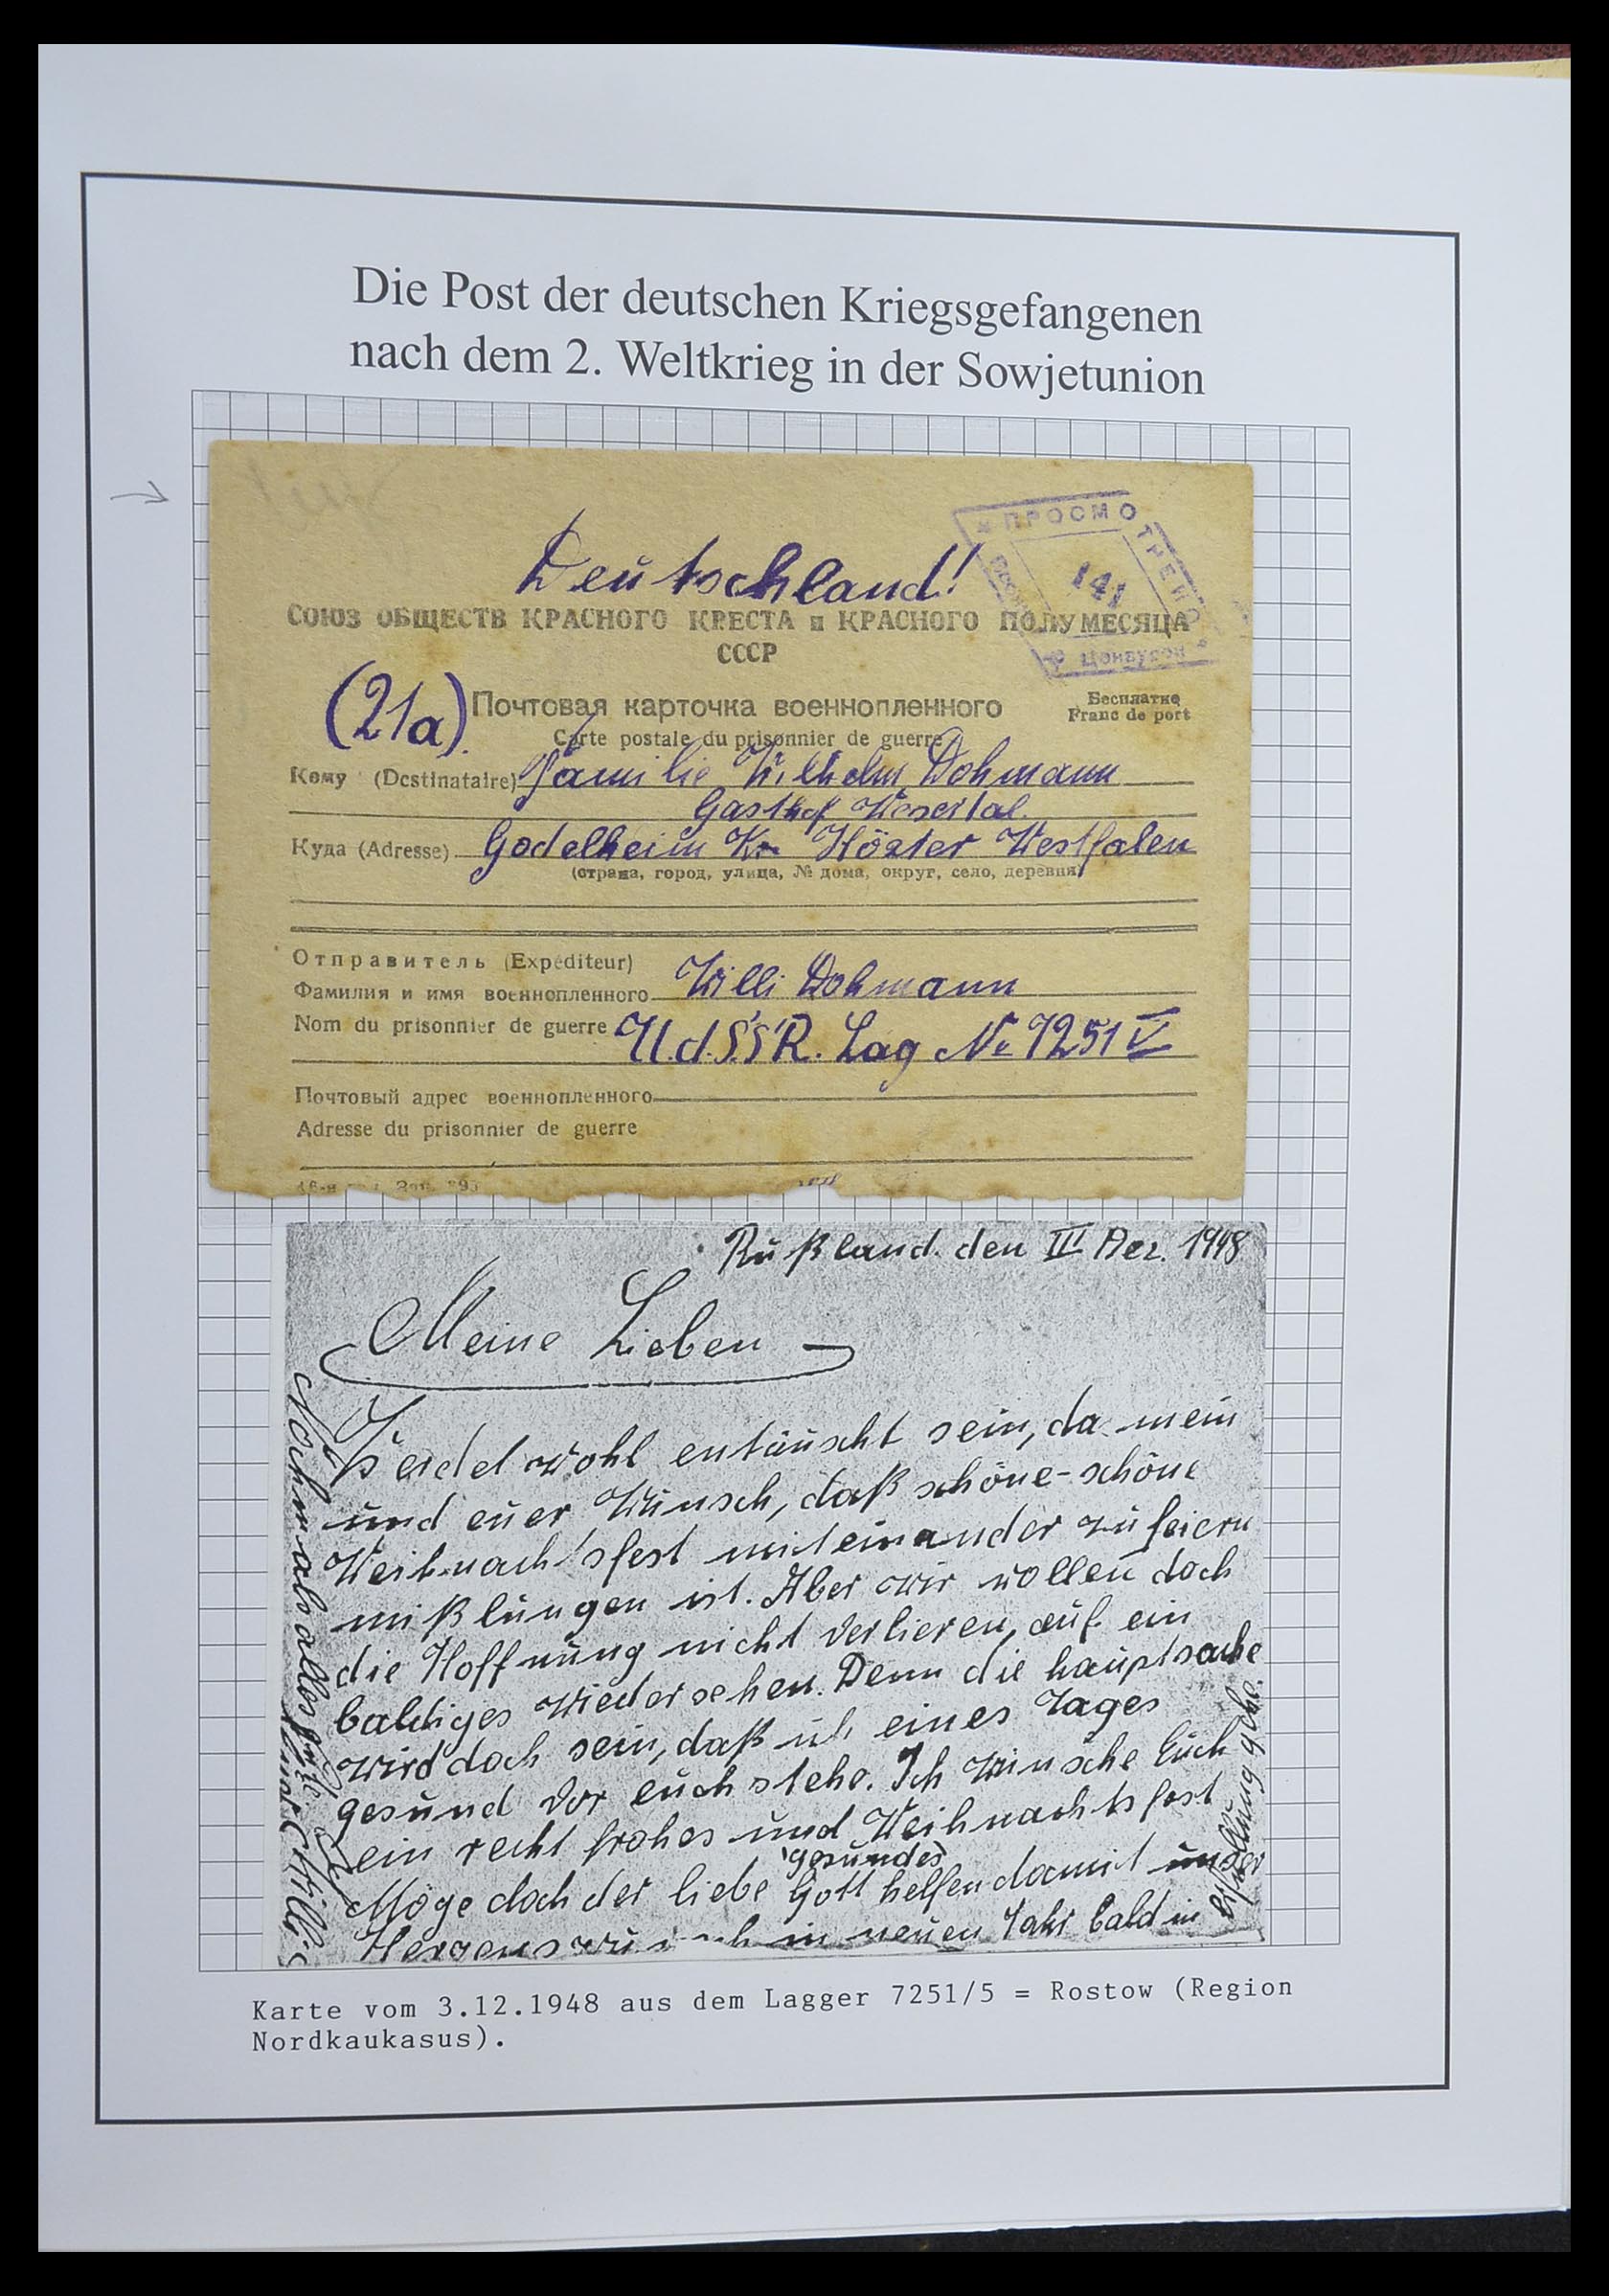 Die Post der deutschen Kriegsgefangenen
nach dem 2. Weltkrieg in der Sowjetunion
Deutschland!
ПРОСМОТРЕНО
141
СОЮЗ ОБЩЕСТВ КРАСНОГО КРЕСТА и КРАСНОГО ПОЛУМЕСЯЦА
СССР
(21a)
Почтовая карточка военнопленного
Carte postale du prisonnier de guerre
Бесплатно
Franc de port
Кому (Destinataire) Familie Wilhelm Dohmann
Gasthof Wesertal.
Куда (Adresse) Godelheim Kr. Höxter Westfalen
(страна, город, улица, № дома, округ, село, деревня)
Отправитель (Expéditeur)
Фамилия и имя военнопленного Willi Dohmann
Nom du prisonnier de guerre U.d.S.S.R. Lag № 7251 V
Почтовый адрес военнопленного
Adresse du prisonnier de guerre
Rußland. den III Dez. 1948
Meine Lieben
Werdet wohl entäuscht sein, da mein
und euer Wunsch, daß schöne-schöne
Weihnachtsfest miteinander zu feiern
mißlungen ist. Aber wir wollen doch
die Hoffnung nicht verlieren, auf ein
baldiges Wiedersehen. Denn die hauptsache
wird doch sein, daß ich eines Tages
gesund vor euch stehe. Ich wünsche Euch
ein recht frohes und Weihnachtsfest
gesundes
Möge doch der liebe Gott helfen damit unser
Herzenswunsch in neuen Jahr bald in
Erfüllung gehe.
Nochmals alles Gute
Euer Willi
Karte vom 3.12.1948 aus dem Lagger 7251/5 = Rostow (Region
Nordkaukasus).